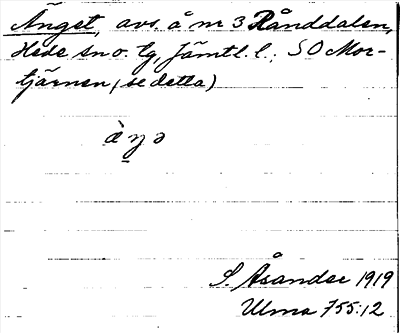 Änget, avs. å nr 3 Rånddalen,
Hede sn o. tg, Jämtl. l.: SO Mor-
tjärnen, (se detta)
S. Åsander 1919
Ulma 755:12